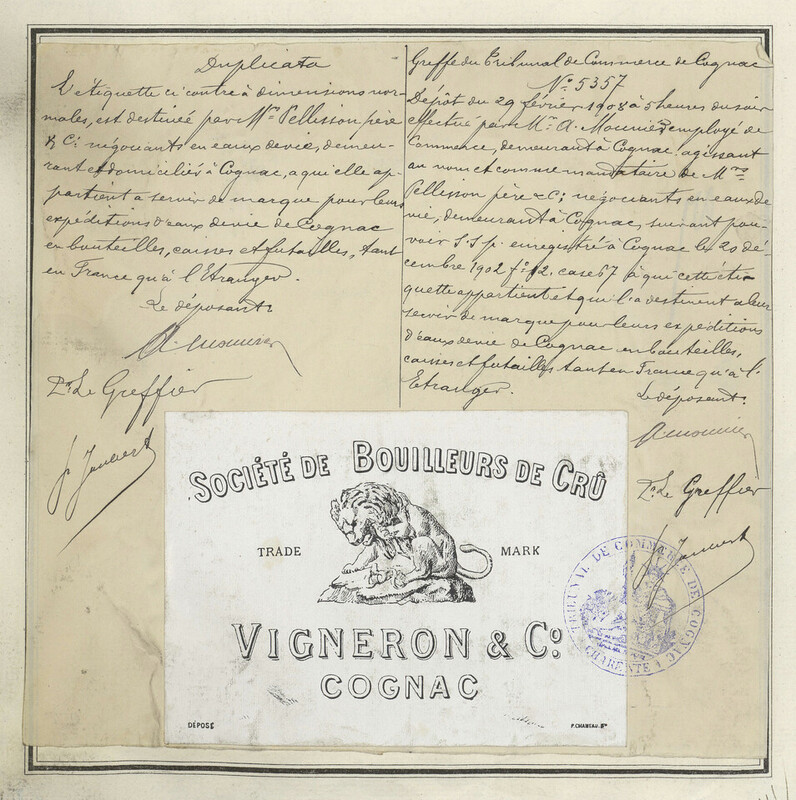 Duplicata
L'étiquette ci contre à dimensions nor-
males, est destinée par Mrs Pellisson père
& Cie négociants en eaux devie, demeu-
rant et domiciliés à Cognac, a qui elle ap-
partient a servir de marque pour leurs
expéditions d'eaux devie de Cognac
en bouteilles, caisses et futailles, tant
en France qu'à l'Etranger.
Le déposant:
A. Mounier
Dt Le Greffier
Greffe du Tribunal de Commerce de Cognac
No 5357
Dépôt du 29 février 1908 à 5 heures du soir
effectué par Mr A. Mounier employé de
Commerce, demeurant à Cognac, agissant
au nom et comme mandataire de Mrs
Pellisson père & Cie négociants en eaux de
vie, demeurant à Cognac, suivant pou-
voir S.S.p. enregistré à Cognac le 20 dé-
cembre 1902 fo 92. case 67 à qui cette éti-
quette appartient et qui l'a destinent a leur
servir de marque pour leurs expéditions
d'eaux devie de Cognac en bouteilles,
caisses et futailles tant en France qu'à l'
Etranger.
Le déposant:
A Mounier
Dt Le Greffier
SOCIÉTÉ DE BOUILLEURS DE CRÛ
TRADE MARK
VIGNERON & Co
COGNAC
DÉPOSÉ
TRIBUNAL DE COMMERCE DE COGNAC
CHARENTE